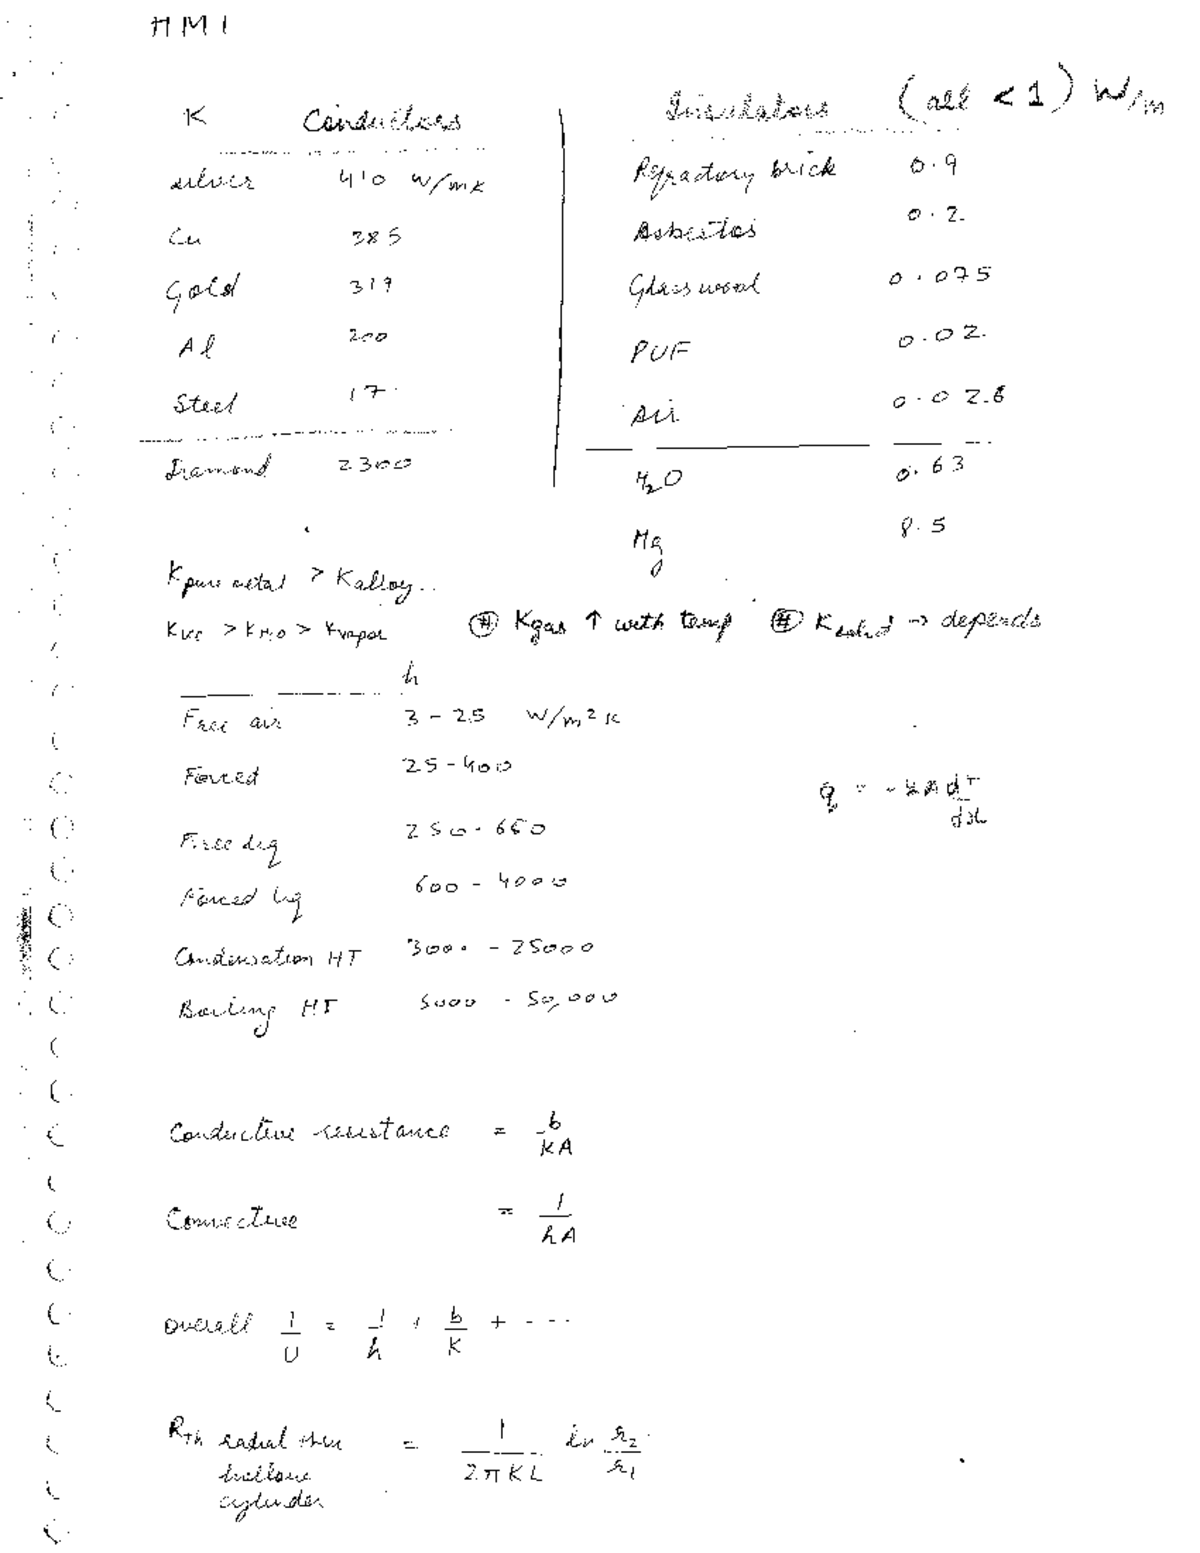 HM1
K Conductors
silver 410 W/mK
Cu 385
Gold 319
Al 200
Steel 17
Diamond 2300
Insulators (all < 1) W/m
Refractory brick 0.9
Asbestos 0.2
Glass wool 0.075
PUF 0.02
Air 0.026
H₂O 0.63
Hg 8.5
K pure metal > K alloy..
K ice > K H₂O > K vapor # K gas ↑ with temp # K solid → depends
h
Free air 3 - 25 W/m² K
Forced 25 - 400
q = - k A dT/dx
Free liq 250 - 600
Forced liq 600 - 4000
Condensation HT 3000 - 25000
Boiling HT 5000 - 50,000
Conductive resistance = b/KA
Convective = 1/hA
overall 1/U = 1/h + b/K + ----
R th radial thru = 1/2πKL ln r₂/r₁
hollow
cylinder